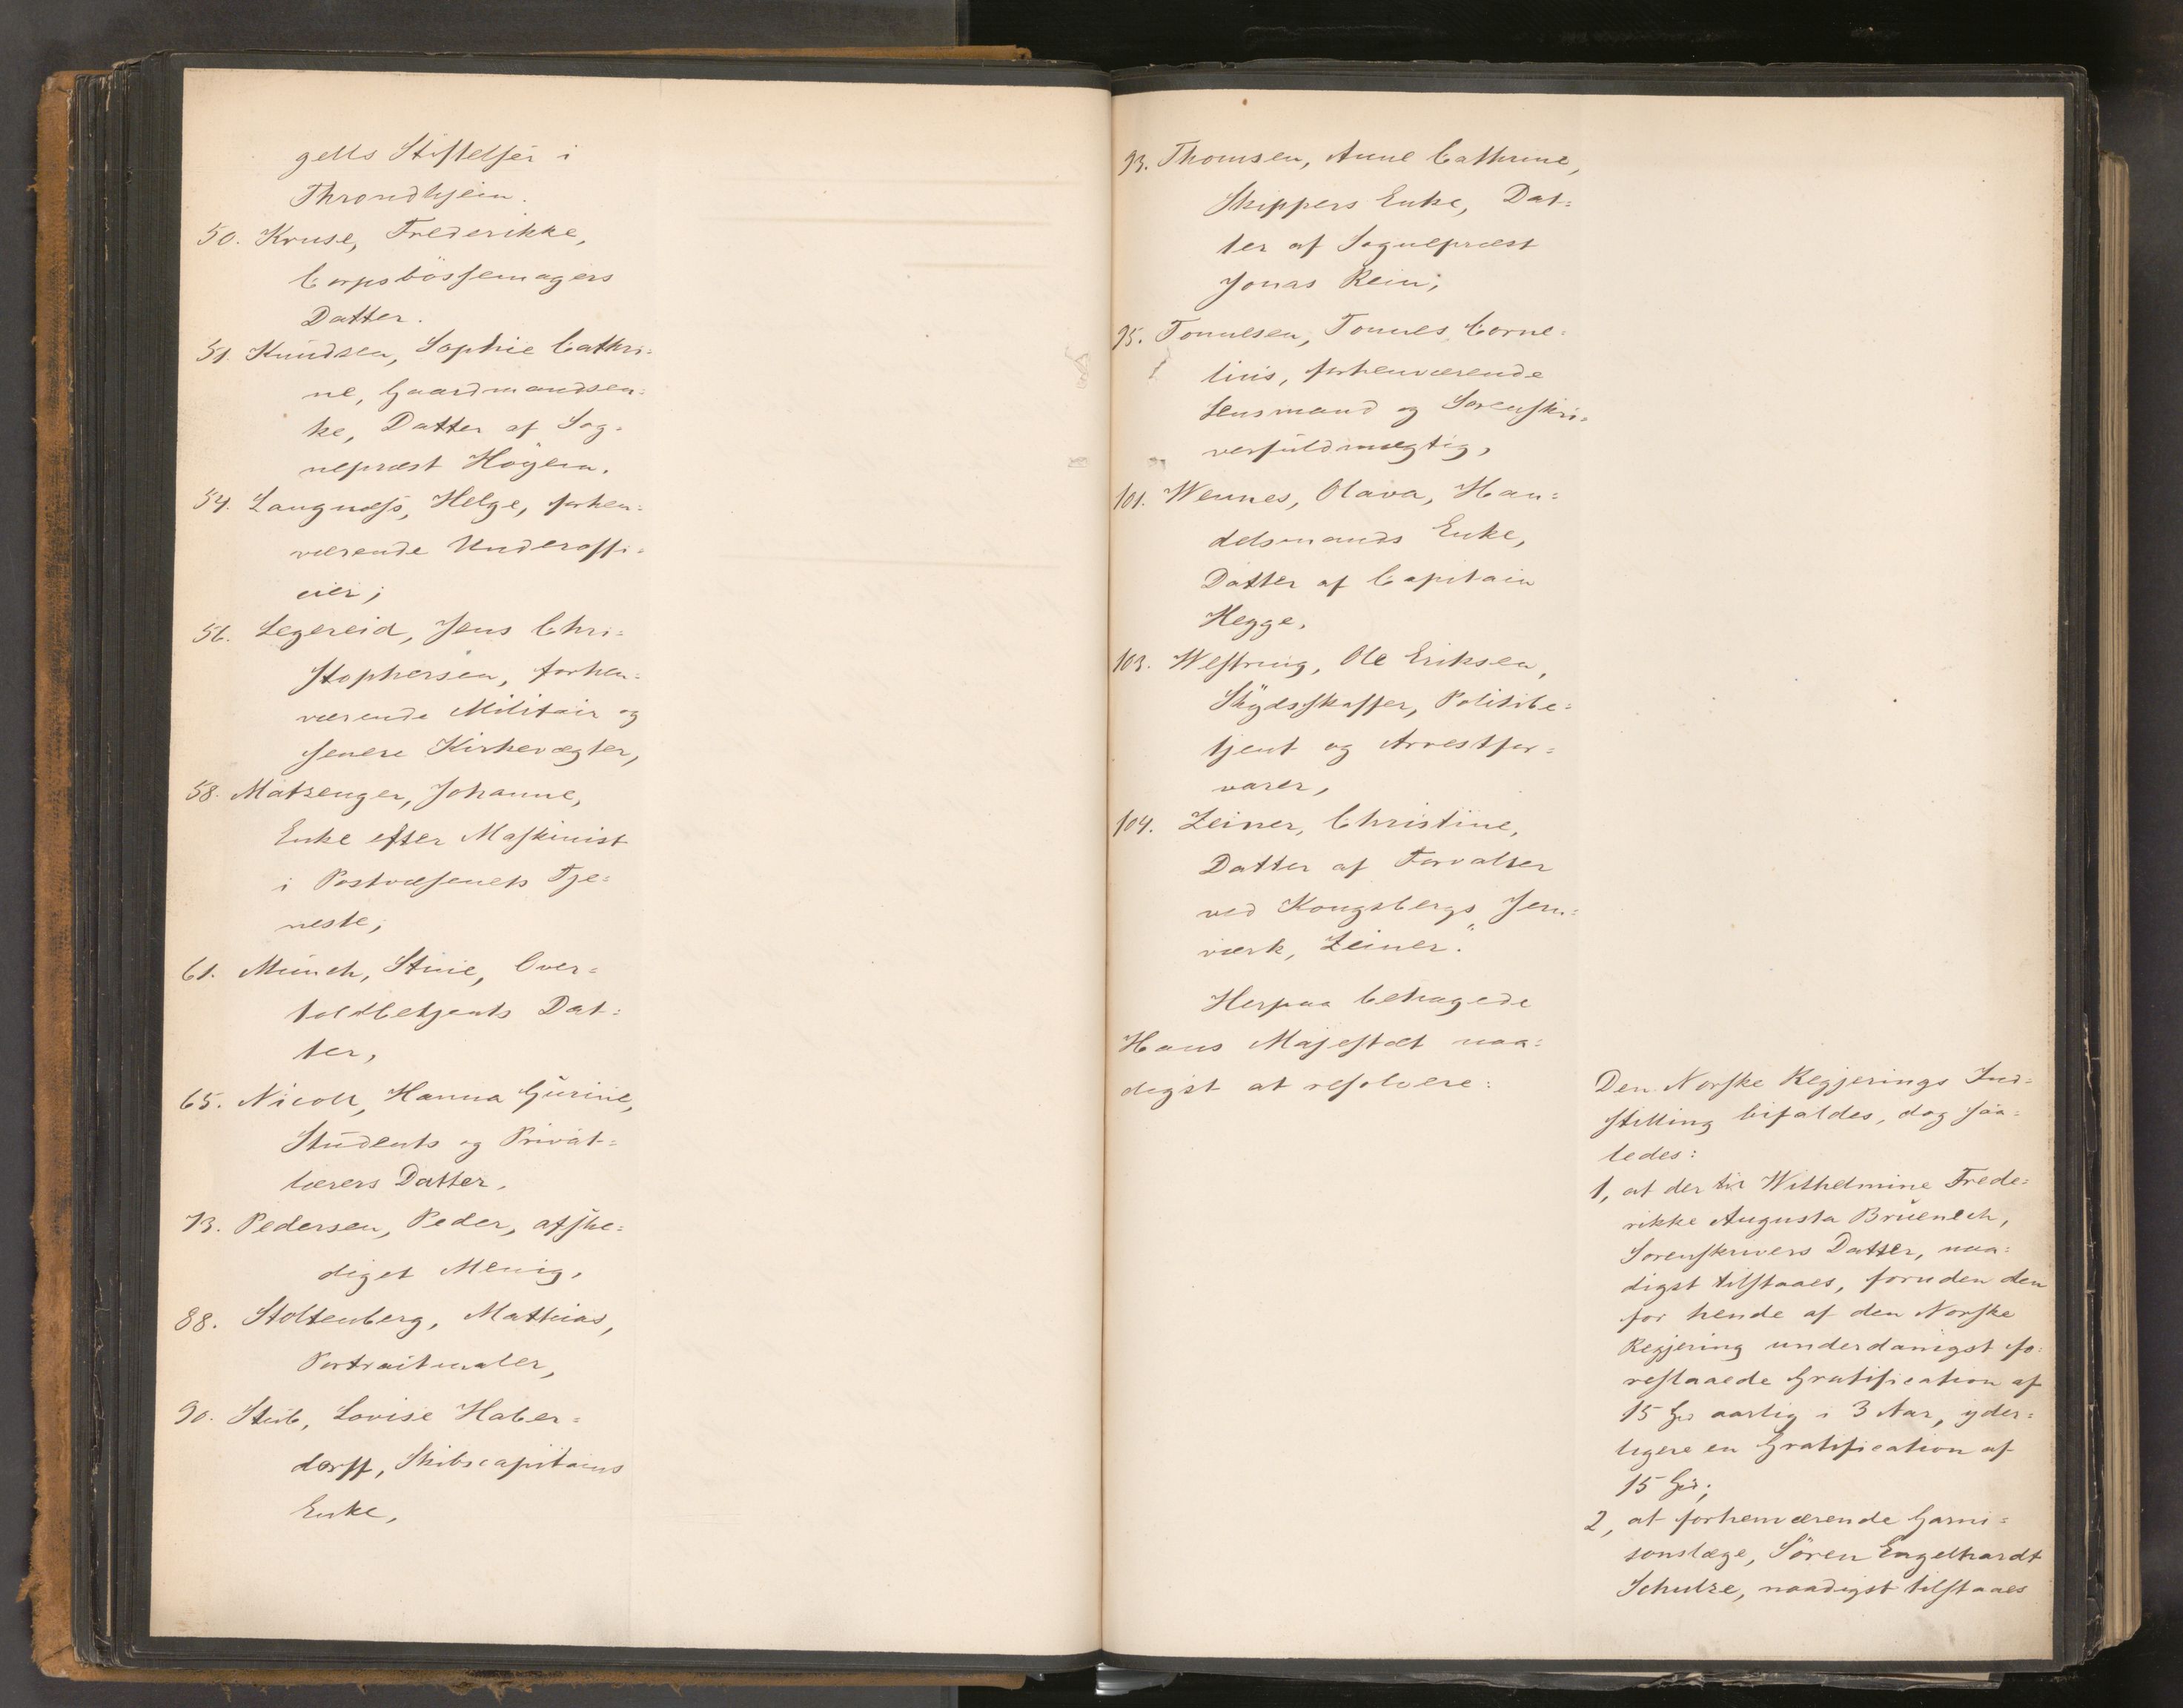 gells Stiftelser i
Throndhjem.
50. Kruse, Frederikke,
Corpsbössemagers
Datter.
51. Knudsen, Sophie Cathri=
ne, Gaardmandsen=
ke, Datter af Sog=
nepræst Höyem.
54. Langnæss, Helge, forhen=
værende Underoffi=
cier;
56. Legereid, Jens Chri=
stophersen, forhen=
værende Militair og
senere Kirkevægter,
58. Matzenger, Johanne,
Enke efter Maskinist
i Postvæsenets Tje=
neste;
61. Münch, Stine, Over=
toldbetjents Dat=
ter,
65. Nicoll, Hanna Gurine,
Students og Privat=
lærers Datter.
73. Pedersen, Peder, afske=
diget Menig,
88. Stoltenberg, Mathias,
Portraitmaler,
90. Stub, Lovise Haber=
dorff, Skibscapitains
Enke,
93. Thomsen, Anne Cathrine,
Skippers Enke, Dat=
ter af Sognepræst
Jonas Rein;
95. Tonnesen, Tonnes Corne=
lius, forhenværende
Lensmand og Sorenskri=
verfuldmægtig,
101. Wennes, Olava, Han=
delsmands Enke,
Datter af Capitain
Hegge,
103. Westring, Ole Eriksen,
Skydsskaffer, Politibe=
tjent og Arrestfor=
varer,
104. Zeiner, Christine,
Datter af Forvalter
ved Kongsbergs Jern=
værk, Zeiner."
Herpaa behagede
Hans Majestæt naa=
digst at resolvere:
Den Norske Regjerings Ind=
stilling bifaldes, dog saa=
ledes:
1, at der til Wilhelmine Frede=
rikke Augusta Brüenech,
Sorenskrivers Datter, naa=
digst tilstaaes, foruden den
for hende af den Norske
Regjering underdanigst fo=
reslaaede Gratification af
15 aarlig i 3 Aar, yder=
ligere en Gratification af
15
2, at forhenværende Garni=
sonslæge, Sören Engelhardt
Schulze, naadigst tilstaaes